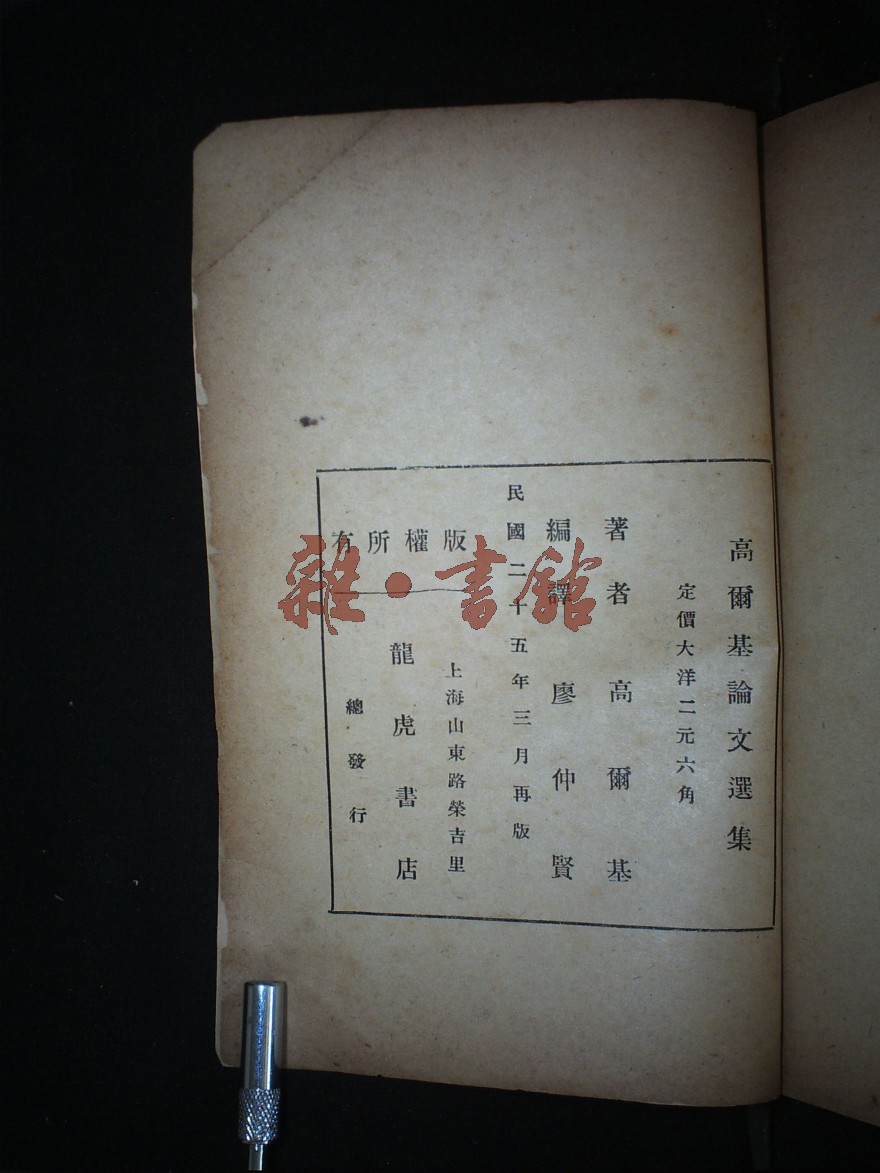 高爾基論文選集
定價大洋二元六角
著者 高爾基
編譯 廖仲賢
民國二十五年三月再版
版權所有
上海山東路榮吉里
龍虎書店
總發行
雜·書館